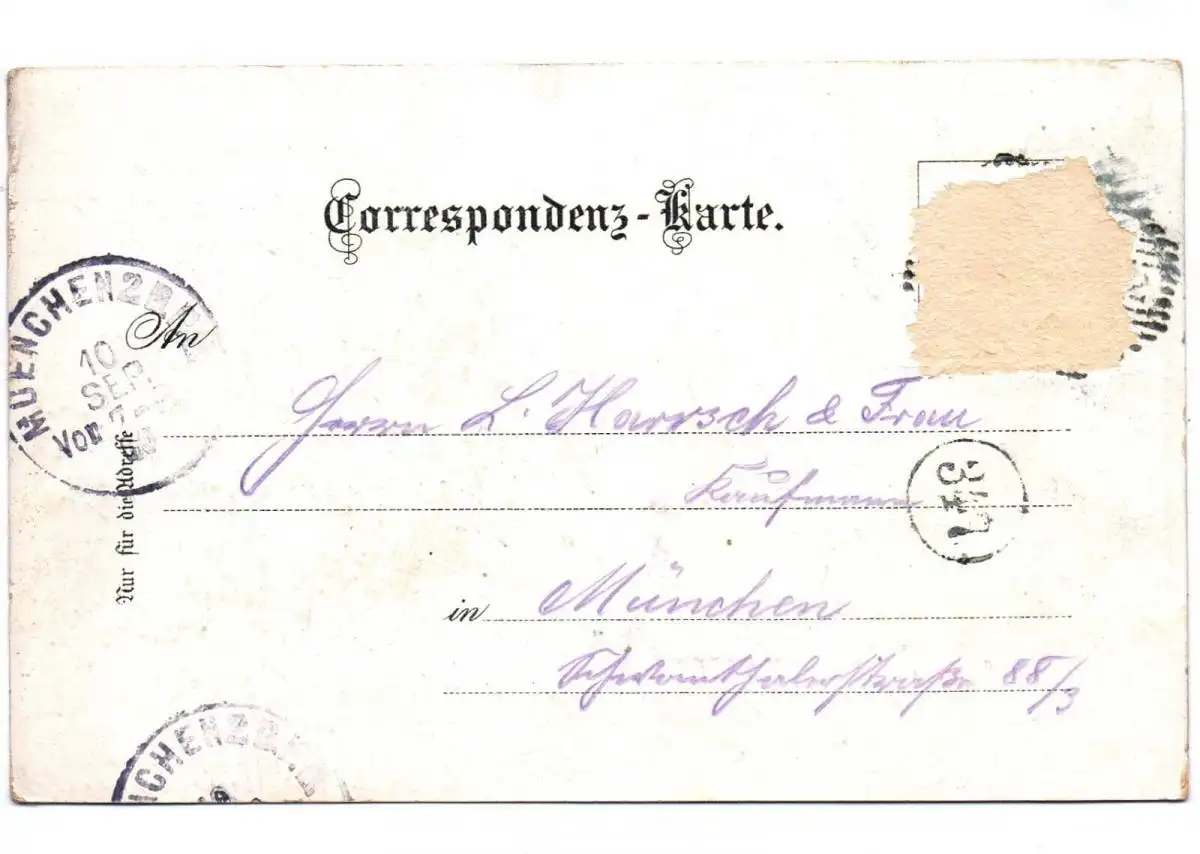 Correspondenz-Karte.
MUENCHEN 2 B.
10
SEP.
Vor 7-
An
Nur für die Adresse
Herrn L. Harrsch & Frau
Kaufmann
in München
Schwanthalerstraße 88/3
CHEN 2 B.